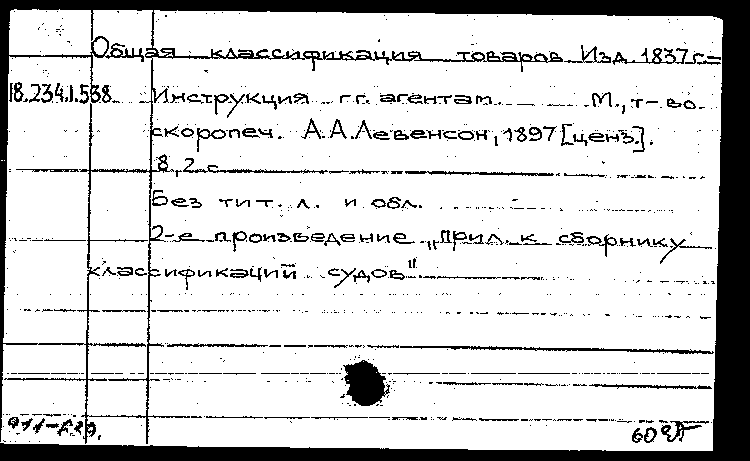 Общая классификация товаров. Изд. 1837 г.=
18.234.1.538 Инструкция г.г. агентам. М., т-во
скоропеч. А.А.Левенсон, 1897 [ценз.].
8, 2 с.
Без тит. л. и обл.
2-е произведение „Прил. к сборнику
классификаций судов"